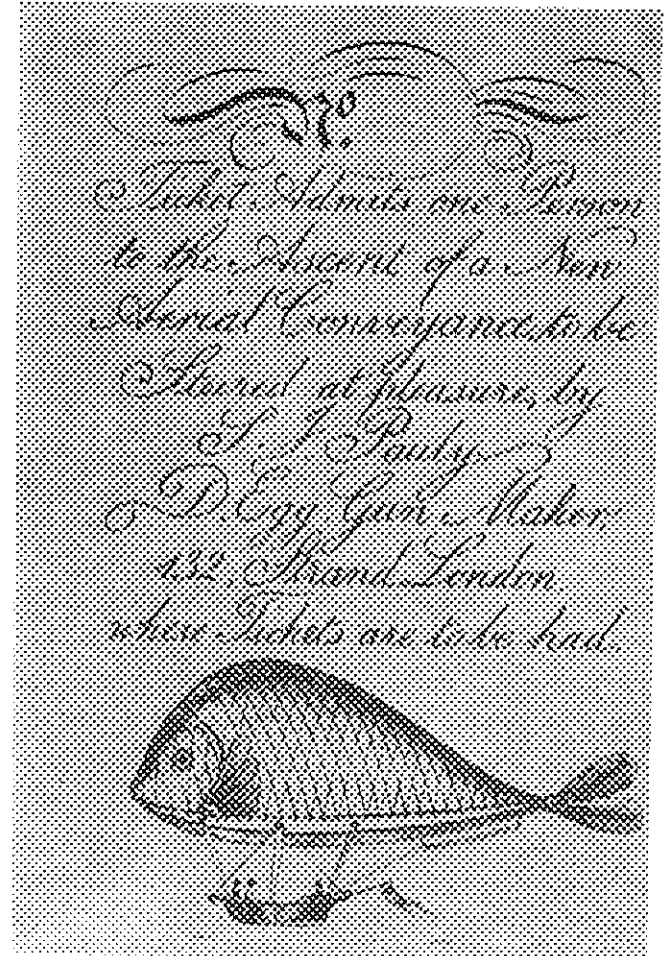 Ticket Admits one Person
to the Ascent of a New
Aerial Conveyance, to be
Steered at pleasure, by
S. J. Pauly
D. Egg, Gun Maker,
132, Strand London,
where Tickets are to be had.